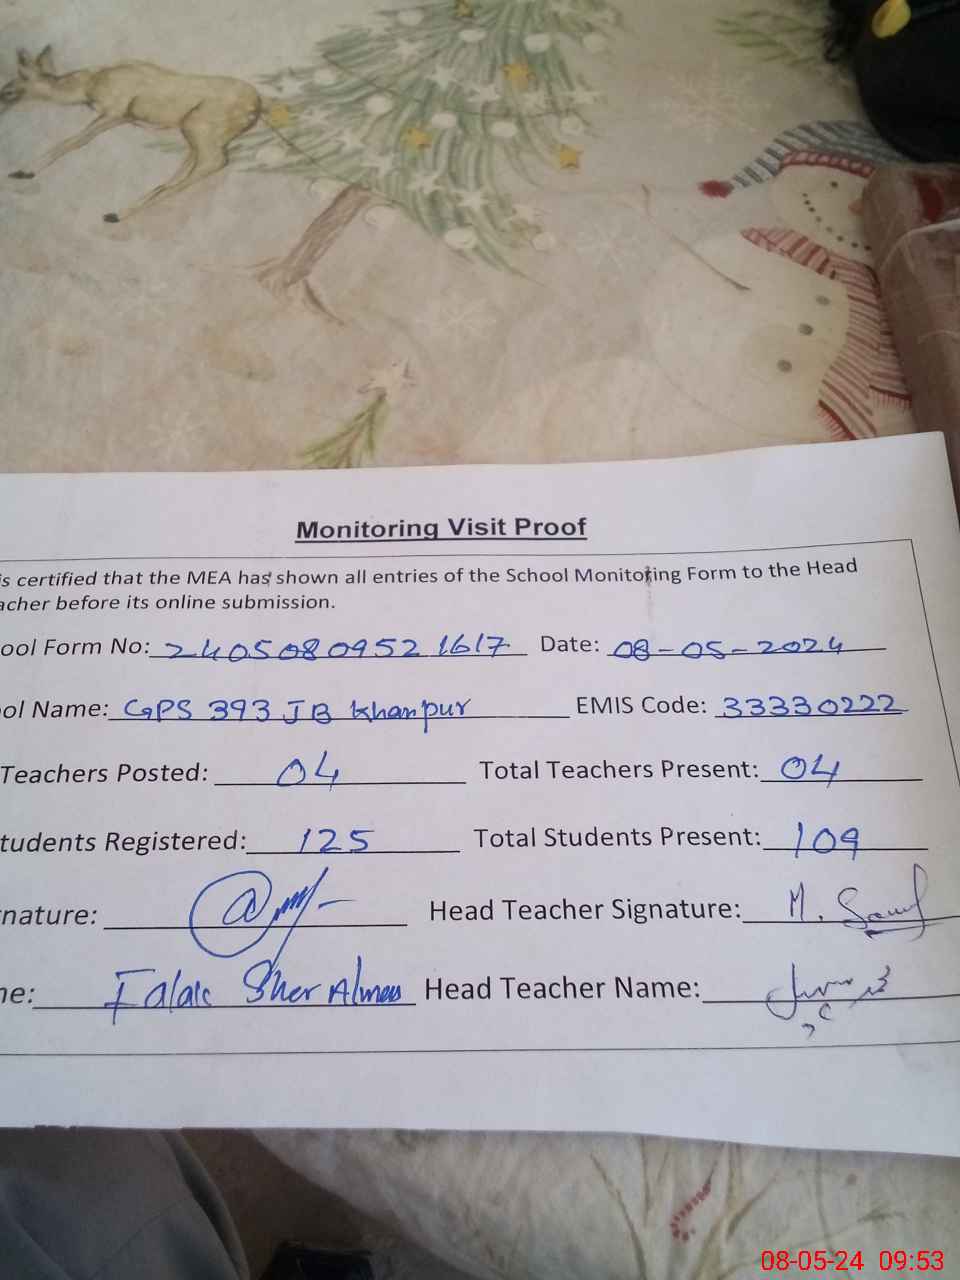 Monitoring Visit Proof
is certified that the MEA has shown all entries of the School Monitoring Form to the Head
acher before its online submission.
ool Form No: 24050809521617 Date: 08-05-2024
ol Name: GPS 393 JB Khanpur EMIS Code: 33330222
Teachers Posted: 04 Total Teachers Present: 04
tudents Registered: 125 Total Students Present: 109
nature: Head Teacher Signature: M.
ne: Falak Sher Head Teacher Name:
08-05-24 09:53